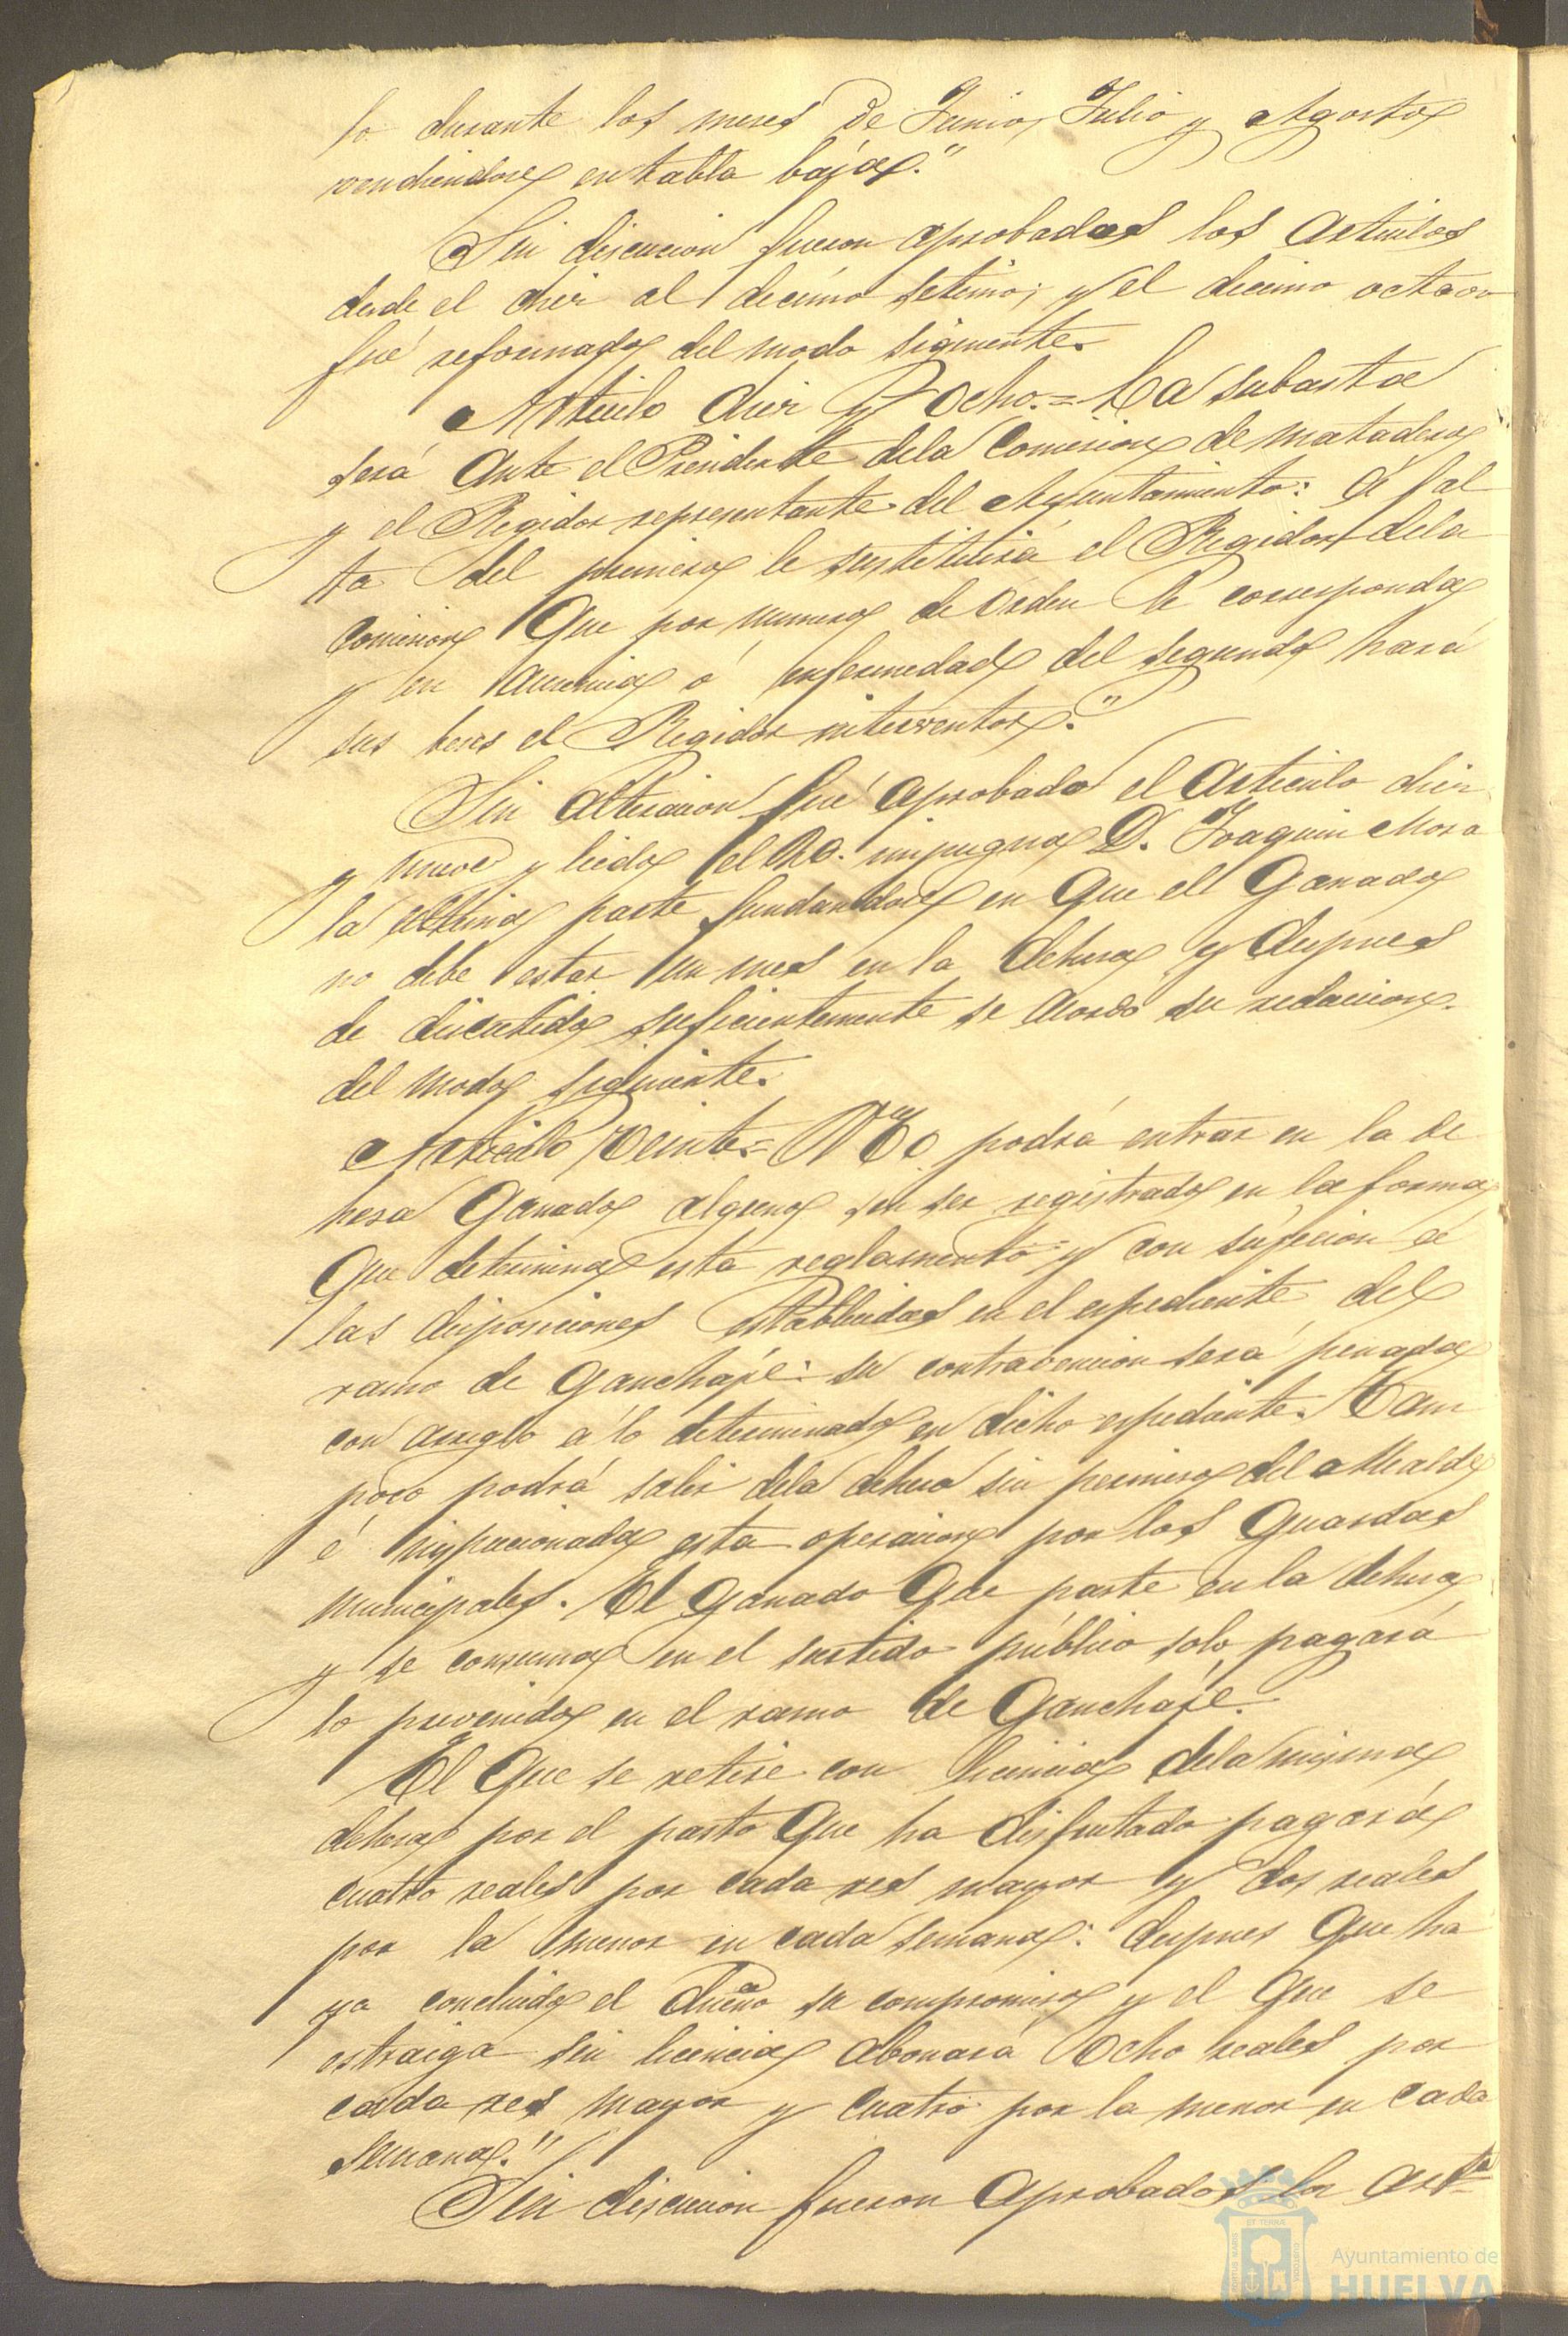 lo durante los meses de Junio, Julio y Agosto
vendiendose en tabla baja."
Sin discucion fueron aprobados los articulos
desde el diez al decimo setimo; y el decimo octavo
fué reformado del modo siguiente.
Articulo diez y ocho.= La subasta
será ante el Presidente dela Comision de matadero
y el Regidor representante del Ayuntamiento: á fal
ta del primero le sustituirá el Regidor dela
comision que por numero de orden le corresponda
y en ausencia ó enfermedad del segundo hará
sus beces el Regidor interventor."
Sin alteracion fué aprobado el articulo diez
y nueve y leido el 20. impugna D. Joaquin Mora
la ultima parte fundandose en que el Ganado
no debe estar un mes en la dehesa y despues
de discutido suficientemente se acordó su redaccion
del modo siguiente.
Articulo veinte.= No podrá entrar en la de
hesa Ganado alguno sin ser registrado en la forma
que determina esta reglamento y con sujecion á
las disposiciones establecidas en el espediente del
ramo de Ganchaje: su contravencion será penada
con arreglo á lo determinado en dicho espediente. Tam
poco podrá salir dela dehesa sin permiso del Alcalde
é inspeccionada esta operacion por los Guardas
municipales. El Ganado que paste en la dehesa
y se consuma en el surtido público solo pagará
lo prevenido en el ramo de Ganchaje.
El que se retire con licencia dela misma
dehesa por el pasto que ha disfrutado pagará
cuatro reales por cada res mayor y dos reales
por la menor en cada semana: despues que ha
ya concluido el dueño su compromiso y el que se
estraiga sin licencia abonará ocho reales por
cada res mayor y cuatro por la menor en cada
semana."
Sin discucion fueron aprobados los art.ˢ
Ayuntamiento de
HUELVA